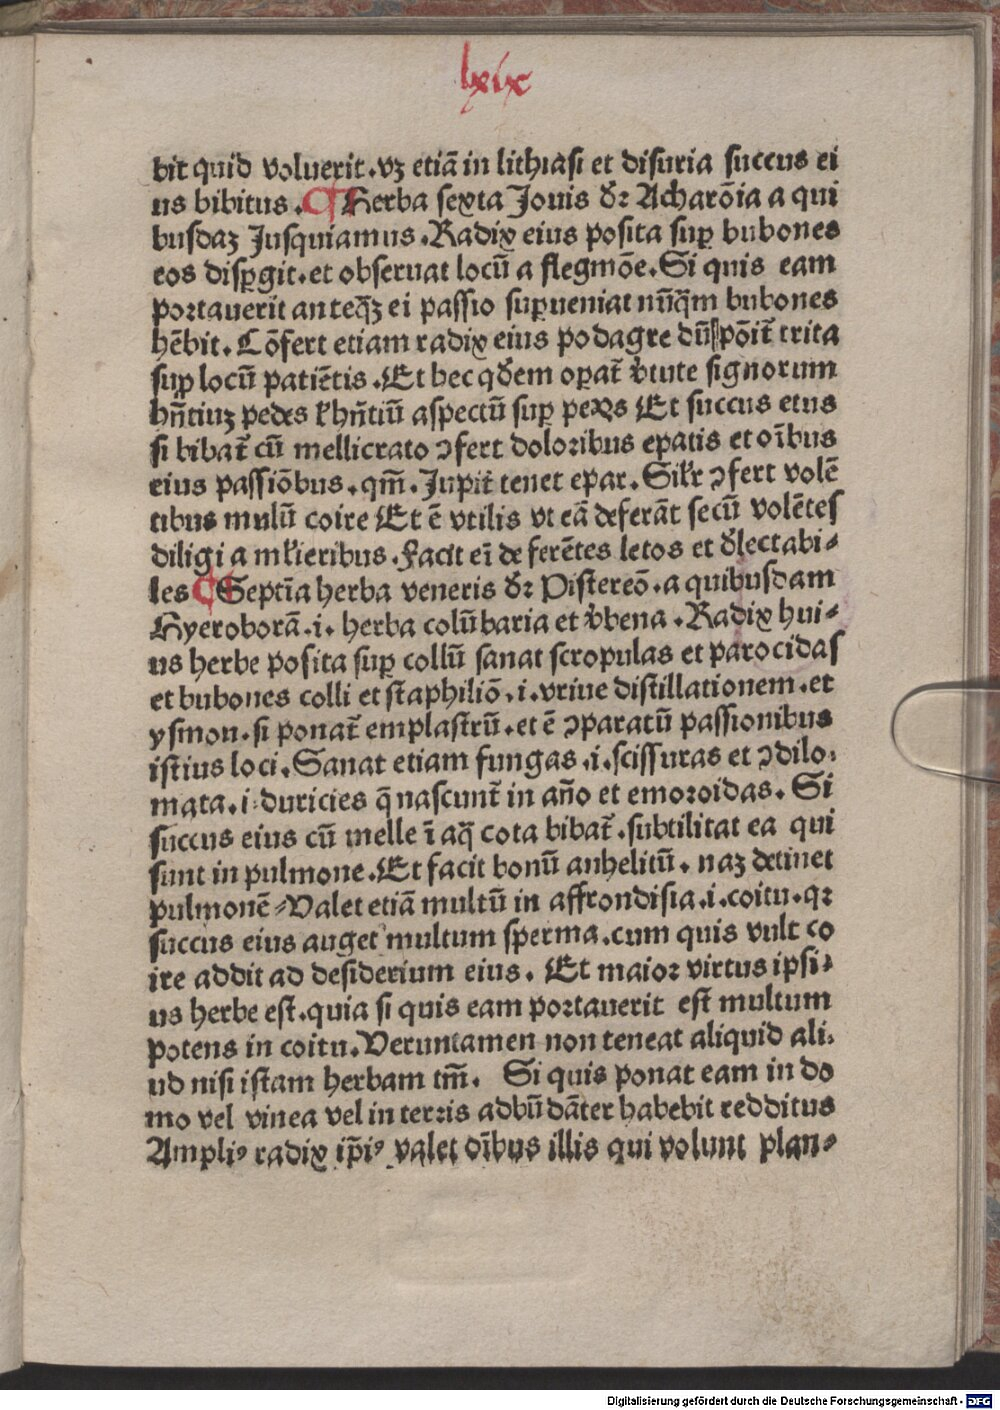 lxix
bit quid voluerit.vꝫ etiā in lithiasi et disuria succus ei
us bibitus.¶Herba sexta Jouis dr̄ Acharōia a qui
busdaꝫ Jusquiamus.Radix eius posita suꝑ bubones
eos disꝑgit.et obseruat locū a flegmōe.Si quis eam
portauerit anteq̄ꝫ ei passio suꝑueniat nūq̄m bubones
hēbit.Cōfert etiam radix eius podagre dūspōit̄ trita
suꝑ locū patiētis.Et hec qdem oꝑat̄ v̄tute signorum
hn̄tiuꝫ pedes ł hn̄tiū aspectū suꝑ pedes Et succus eius
si bibat̄ cū mellicrato ꝯfert doloribus epatis et oībus
eius passiōbus.qm̄.Jupit̄ tenet epar.Silr ꝯfert volē
tibus multū coire Et ē vtilis vt eā deferāt secū volētes
diligi a mlieribus.Facit eī de ferētes letos et dlectabi⸗
les ¶Septīa herba veneris dr̄ Pistereō.a quibusdam
Hyeroborā.i. herba colūbaria et v̄bena.Radix hui⸗
us herbe posita suꝑ collū sanat scropulas et parocidas
et bubones colli et staphiliō.i.vriue distillationem.et
ysmon.si ponat̄ emplastrū.et ē ꝯparatū passionibus
istius loci.Sanat etiam fungas.i.scissuras et ꝯdilo⸗
mata.i.duricies q̄ nascunt̄ in año et emoroidas. Si
succus eius cū melle ī aq̄ cota bibat̄.subtilitat ea qui
sunt in pulmone.Et facit bonū anhelitū. naꝫ detinet
pulmonē⸗Valet etiā multū in affrondisia.i.coitu.qꝛ
succus eius auget multum sperma.cum quis vult co
ire addit ad desiderium eius. Et maior virtus ipsi⸗
us herbe est.quia si quis eam portauerit est multum
potens in coitu.Veruntamen non teneat aliquid ali⸗
ud nisi istam herbam tm̄. Si quis ponat eam in do
mo vel vinea vel in terris adbūdāter habebit redditus
Ampliꝰ radix ip̄iꝰ valet oībus illis qui volunt plan⸗
Digitalisierung gefördert durch die Deutsche Forschungsgemeinschaft - DFG